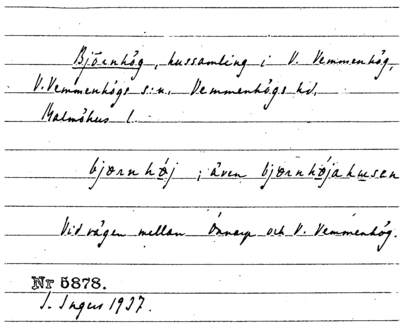 Björnhög, hussamling i V. Vemmenhög,
V. Vemmenhögs s:n. Vemmenhögs hd.
Malmöhus l.
bjørnhøj ; även bjørnhøjahusen
Vid vägen mellan Önnarp och V. Vemmenhög.
Nr 5878.
I. Ingers 1937.